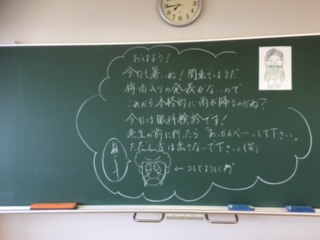 おはよう!
今日も暑いね!関東ではまだ
梅雨入りの発表がないので
これから本格的に雨が降るのかね?
今日は眼科検診です!
先生の前に行ったら「あっかんべー」して下さい。
ただし舌は出さないで下さい(笑)